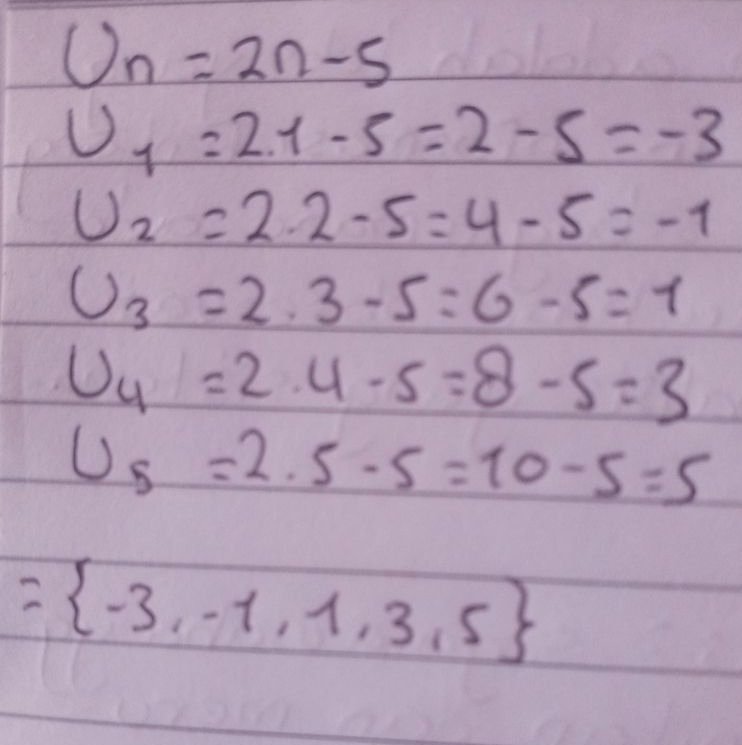 Un = 2n - 5
U1 = 2.1 - 5 = 2 - 5 = -3
U2 = 2.2 - 5 = 4 - 5 = -1
U3 = 2.3 - 5 = 6 - 5 = 1
U4 = 2.4 - 5 = 8 - 5 = 3
U5 = 2.5 - 5 = 10 - 5 = 5
= {-3, -1, 1, 3, 5}